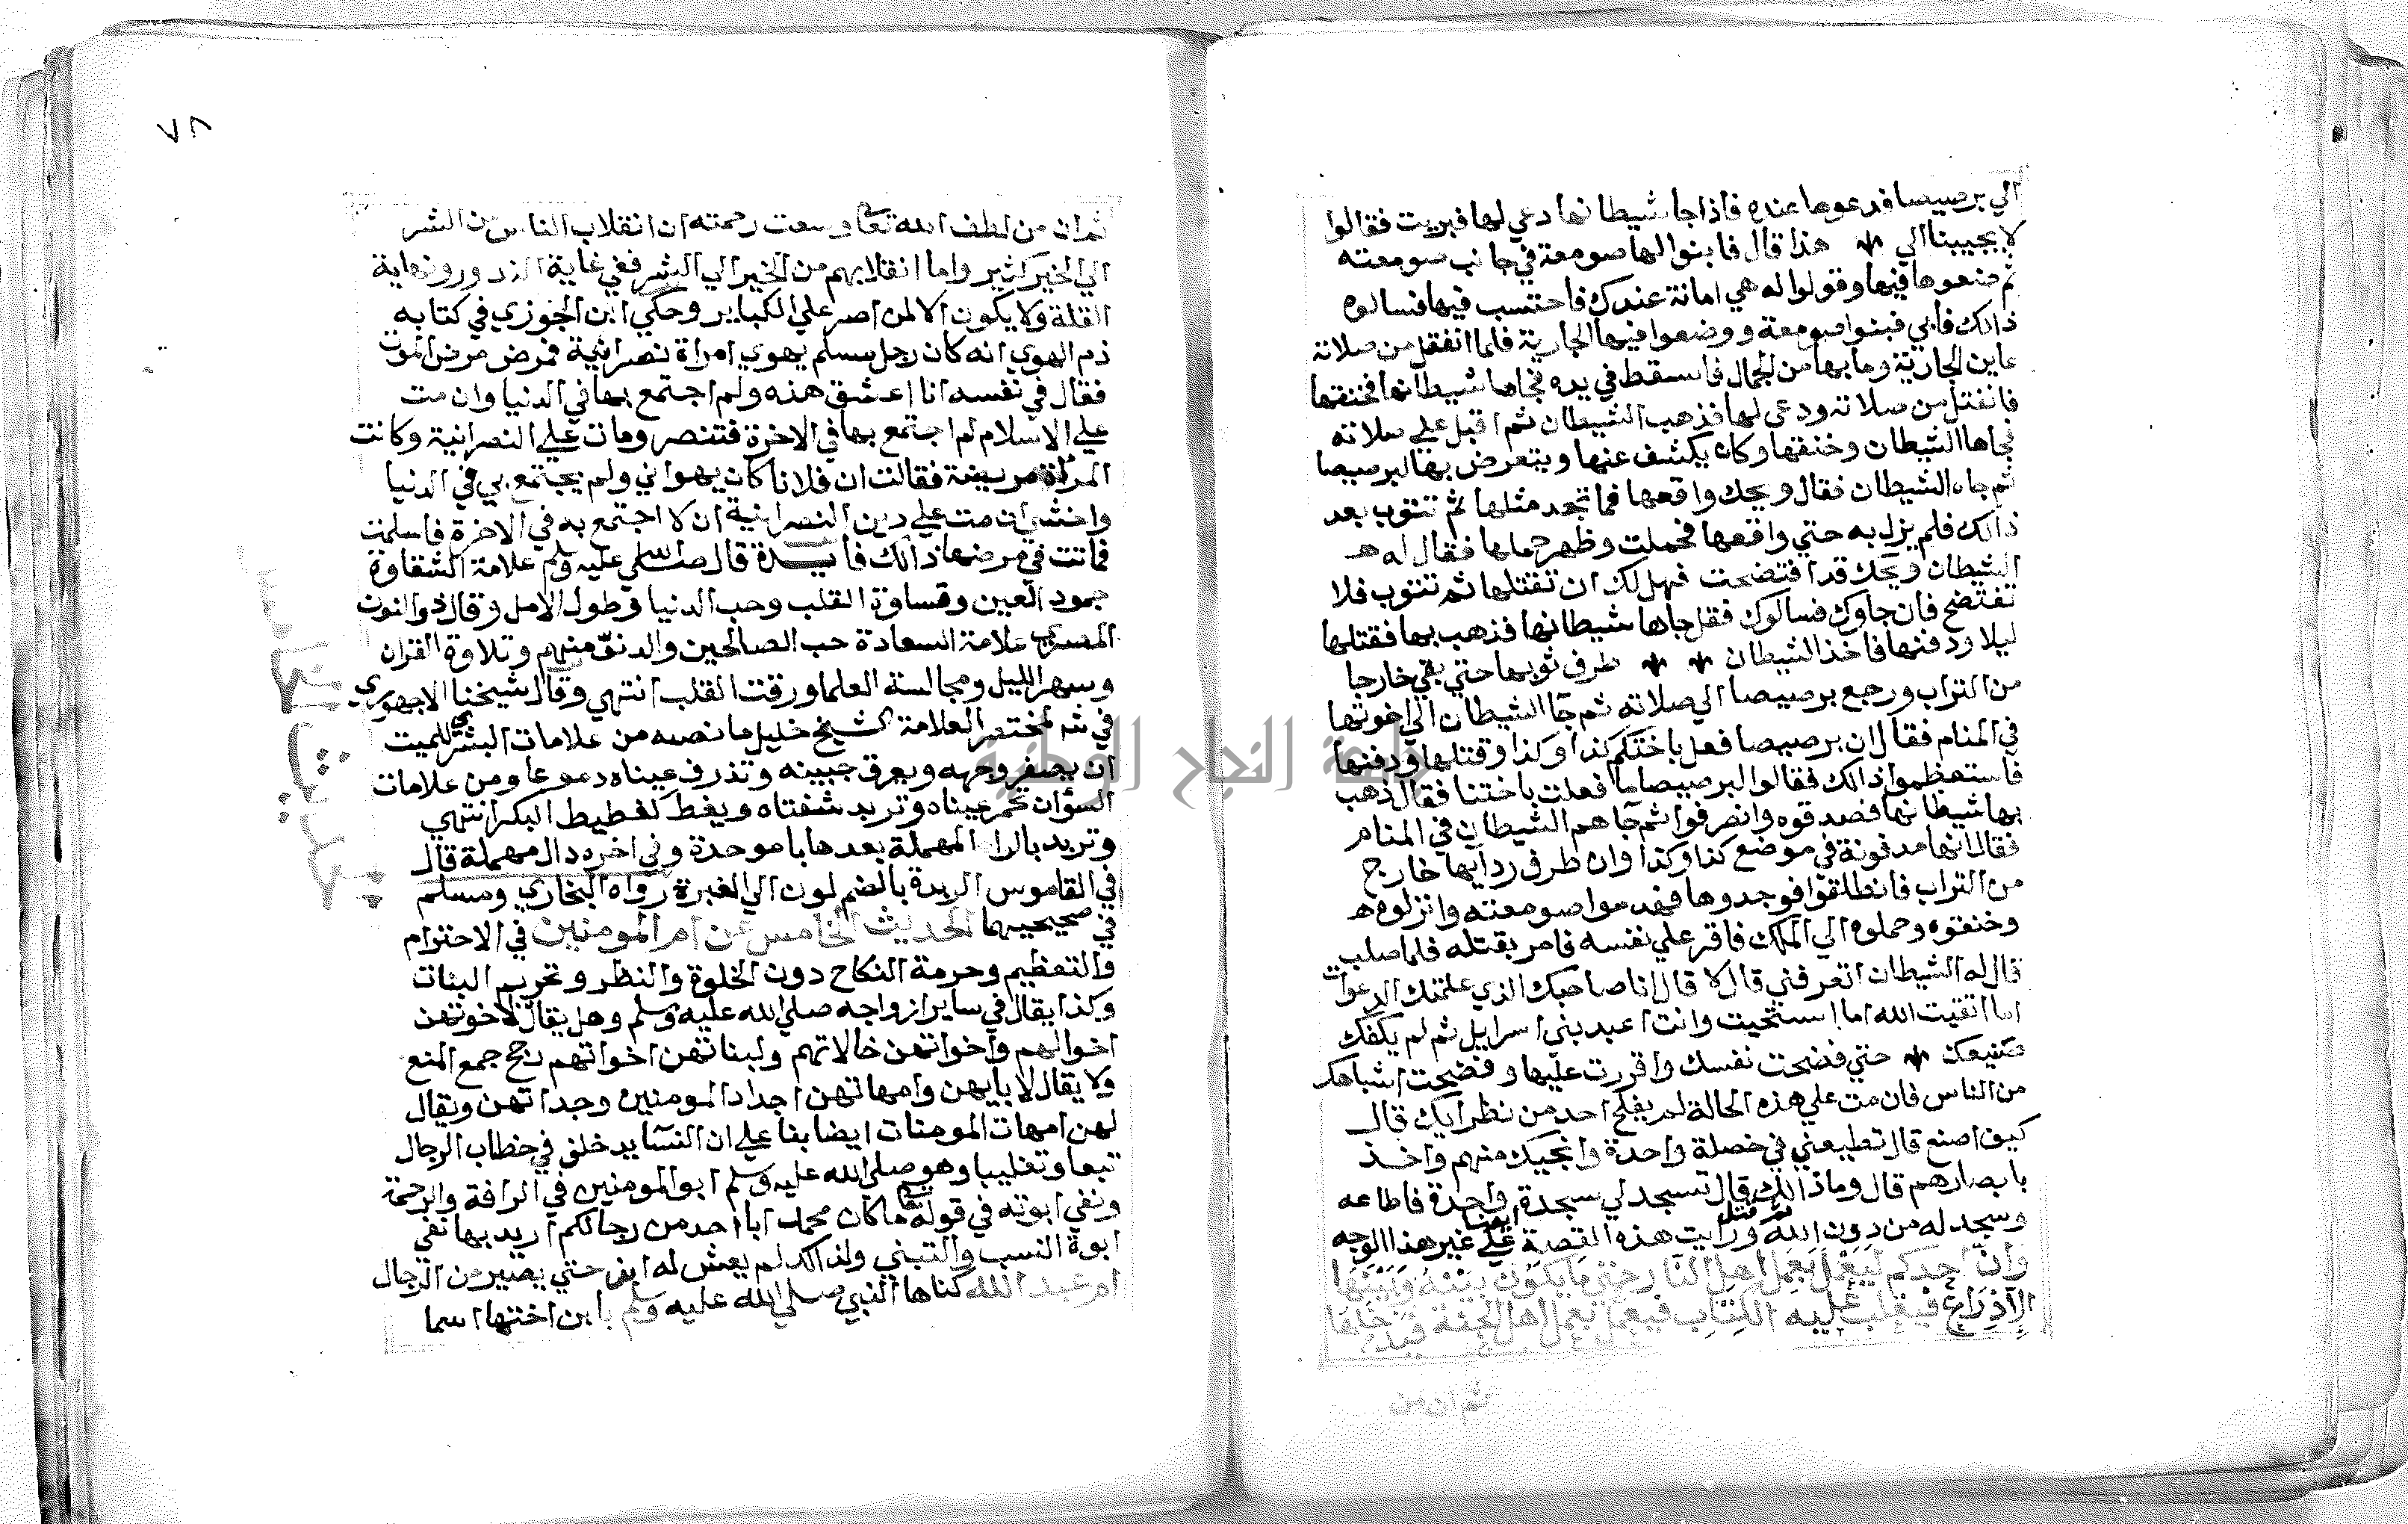 الي برصيصا فدعوها عنده فاذا جا شيطانها دعي لها فبريت فقالوا
لا يجيبنا الي هذا قال فابنوا لها صومعة في جانب صومعته
ثم ضعوها فيها وقولوا له هي امانة عندك فاحتسب فيها فسالوه
ذالك فابي فبنوا صومعة ووضعوا فيها الجارية فلما انفتل من صلاته
عاين الجارية وما بها من الجمال فاسقط في يده فجاها شيطانها فخنقها
فانفتل من صلاته ودعي لها فذهب الشيطان ثم اقبل علي صلاته
فجاها الشيطان وخنقها وكان يكشف عنها ويتعرض بها لبرصيصا
ثم جاه الشيطان فقال ويحك واقعها فما تجد مثلها ثم تتوب بعد
ذالك فلم يزل به حتي واقعها فحملت وظهر حملها فقال له
الشيطان ويحك قد افتضحت فهل لك ان تقتلها ثم تتوب فلا
تفتضح فان جاوك فسالوك فقل جاها شيطانها فذهب بها فقتلها
ليلا ودفنها فاخذ الشيطان طرف ثوبها حتي بقي خارجا
من التراب ورجع برصيصا الي صلاته ثم جآ الشيطان الي اخوتها
في المنام فقال ان برصيصا فعل باختكم كذا وكذا وقتلها ودفنها
فاستعظموا ذالك فقالوا لبرصيصا ما فعلت باختنا فقال ذهب
بها شيطانها فصدقوه وانصرفوا ثم جآهم الشيطان في المنام
فقال انها مدفونة في موضع كذا وكذا وان طرف ردآيها خارج
من التراب فانطلقوا فوجدوها فهدموا صومعته وانزلوه
وخنقوه وحملوه الي الملك فاقر علي نفسه فامر بقتله فلما صلب
قال له الشيطان اتعرفني قال لا قال انا صاحبك الذي علمتك الدعوات
اما اتقيت الله اما استحيت وانت اعبد بني اسرايل ثم لم يكفك
صنيعك حتي فضحت نفسك واقررت عليها وفضحت اشباهك
من الناس فان مت علي هذه الحالة لم يفلح احد من نظرايك قال
كيف اصنع قال تطيعني في خصلة واحدة وانجيك منهم واخذ
بابصارهم قال وما ذالك قال تسجد لي سجدة واحدة فاطاعه
وسجد له من دون الله ورايت هذه القصة ايضا علي غير هذا الوجه
وان احدكم ليعمل بعمل اهل النار حتي ما يكون بينه وبينها
الا ذراع فيغلب عليه الكتاب فيعمل بعمل اهل الجنة فيدخلها
ثم ان من
٧٨
ثم ان من لطف الله تعالي وسعت رحمته ان انقلاب الناس من الشر
الي الخير كثير واما انقلابهم من الخير الي الشر ففي غاية الندور ونهاية
القلة ولا يكون الا لمن اصر علي الكباير وحكي ابن الجوزي في كتابه
ذم الهوي انه كان رجل مسلم يهوي امراة نصرانية فمرض مرض الموت
فقال في نفسه انا اعشق هذه ولم اجتمع بها في الدنيا وان مت
علي الاسلام لم اجتمع بها في الاخرة فتنصر ومات علي النصرانية وكانت
المراة مريضة فقالت ان فلانا كان يهواني ولم يجتمع بي في الدنيا
واخشي ان مت علي دين النصرانية ان لا اجتمع به في الاخرة فاسلمت
فماتت في مرضها ذالك فايدة قال صلي الله عليه وسلم علامة الشقاوة
جمود العين وقساوة القلب وحب الدنيا وطول الامل وقال ذوالنون
المصري علامة السعادة حب الصالحين والدنو منهم وتلاوة القران
وسهر الليل ومجالسة العلما ورقت القلب انتهي وقال شيخنا الاجهوري
في شر لمختصر العلامة الشيخ خليل ما نصه من علامات البشري للميت
ان يصفر وجهه ويعرق جبينه وتذرف عيناه دموعا ومن علامات
السؤان تحمر عيناه وتربد شفتاه ويغط كغطيط البكر انتهي
وتربد بالرا المهملة بعدها با موحدة وفي اخره دال مهملة قال
في القاموس الربدة بالضم لون الي الغبرة رواه البخاري ومسلم
في صحيحيهما الحديث الخامس عن ام المومنين في الاحترام
والتعظيم وحرمة النكاح دون الخلوة والنظر وتحريم البنات
وكذا يقال في ساير ازواجه صلي الله عليه وسلم وهل يقال لاخوتهن
اخوالهم واخواتهن خالاتهم ولبناتهن اخواتهم رجح جمع المنع
ولا يقال لابايهن وامهاتهن اجداد المومنين وجداتهن ويقال
لهن امهات المومنات ايضا بنا علي ان النسآ يدخلن في خطاب الرجال
تبعا وتغليبا وهو صلي الله عليه وسلم ابو المومنين في الرافة والرحمة
ونفي ابوته في قوله تعالي ما كان محمد ابا احد من رجالكم اريد بها نفي
ابوة النسب والتبني ولذالك لم يعش له ابن حتي يصير من الرجال
ام عبد الله كناها النبي صلي الله عليه وسلم بابن اختها اسما
جامعة النجاح الوطنية